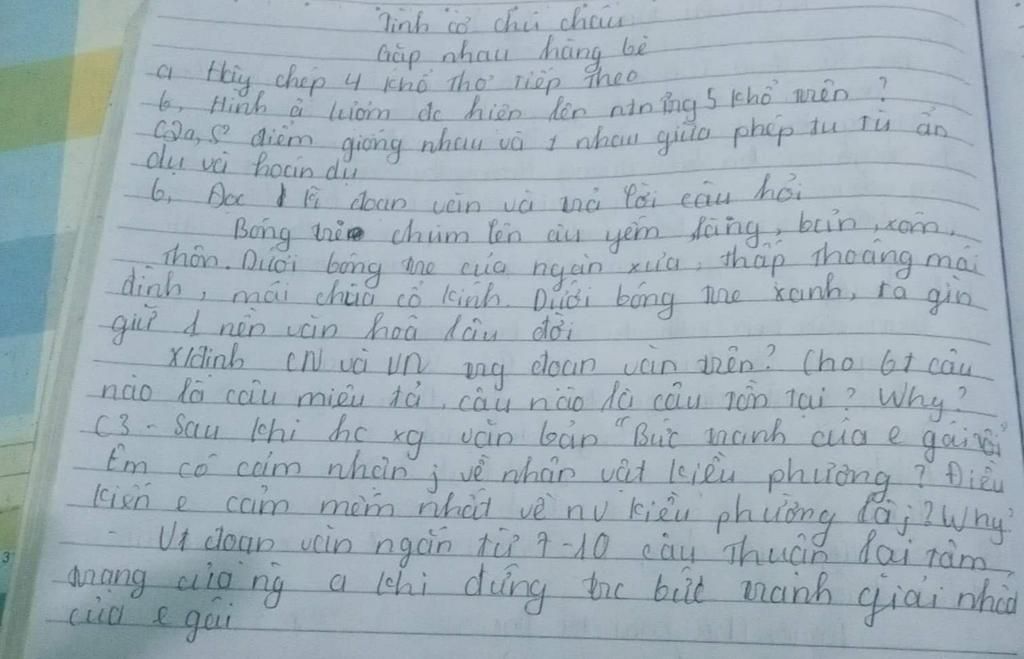 Tình cờ chú cháu
Gặp nhau hàng bè
a Hãy chép 4 khổ thơ tiếp theo
b, Hình ả lượm đc hiện lên ntn ~ng 5 khổ trên ?
C2a, S² điểm giống nhau và ≠ nhau giữa phép tu từ ẩn
dụ và hoán dụ
b, Đọc kĩ đoạn văn và trả lời câu hỏi
Bóng tre chùm lên âu yếm làng, bản, xóm,
thôn. Dưới bóng tre của ngàn xưa, thấp thoáng mái
đình, mái chùa cổ kính. Dưới bóng tre xanh, ta gìn
giữ 1 nền văn hoá lâu đời
x/định CN và VN trg đoạn văn trên? Cho bt câu
nào là câu miêu tả, câu nào là câu tồn tại? Why?
C3 - Sau khi hc xg văn bản "Bức tranh của e gái tôi"
Em có cảm nhận j về nhân vật kiều phương? Điều
kiến e cảm mến nhất về nv kiều phương là j? Why?
- Vt đoạn văn ngắn từ 7-10 câu thuân lại tâm
trạng của ng a khi đứng trc bức tranh giải nhất
của e gái
3